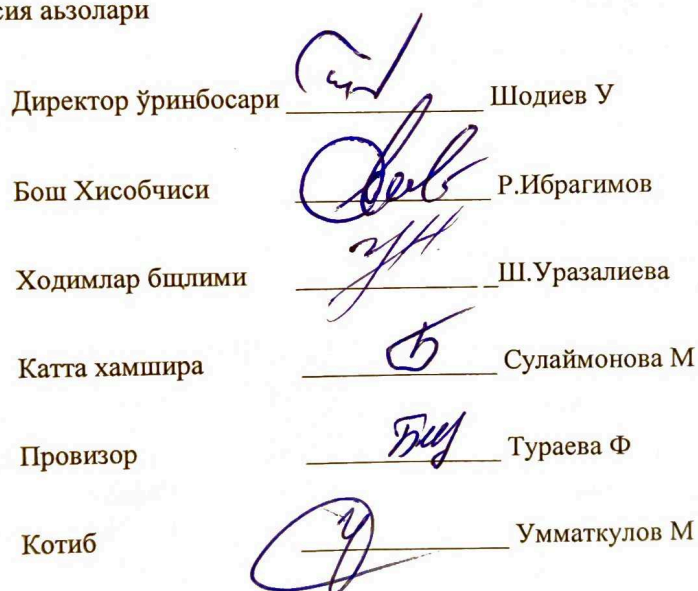 сия аьзолари
Директор ўринбосари ________________ Шодиев У
Бош Хисобчиси ________________ Р.Ибрагимов
Ходимлар бщлими ________________ _Ш.Уразалиева
Катта хамшира ________________ Сулаймонова М
Провизор ________________ Тураева Ф
Котиб ________________ Умматкулов М